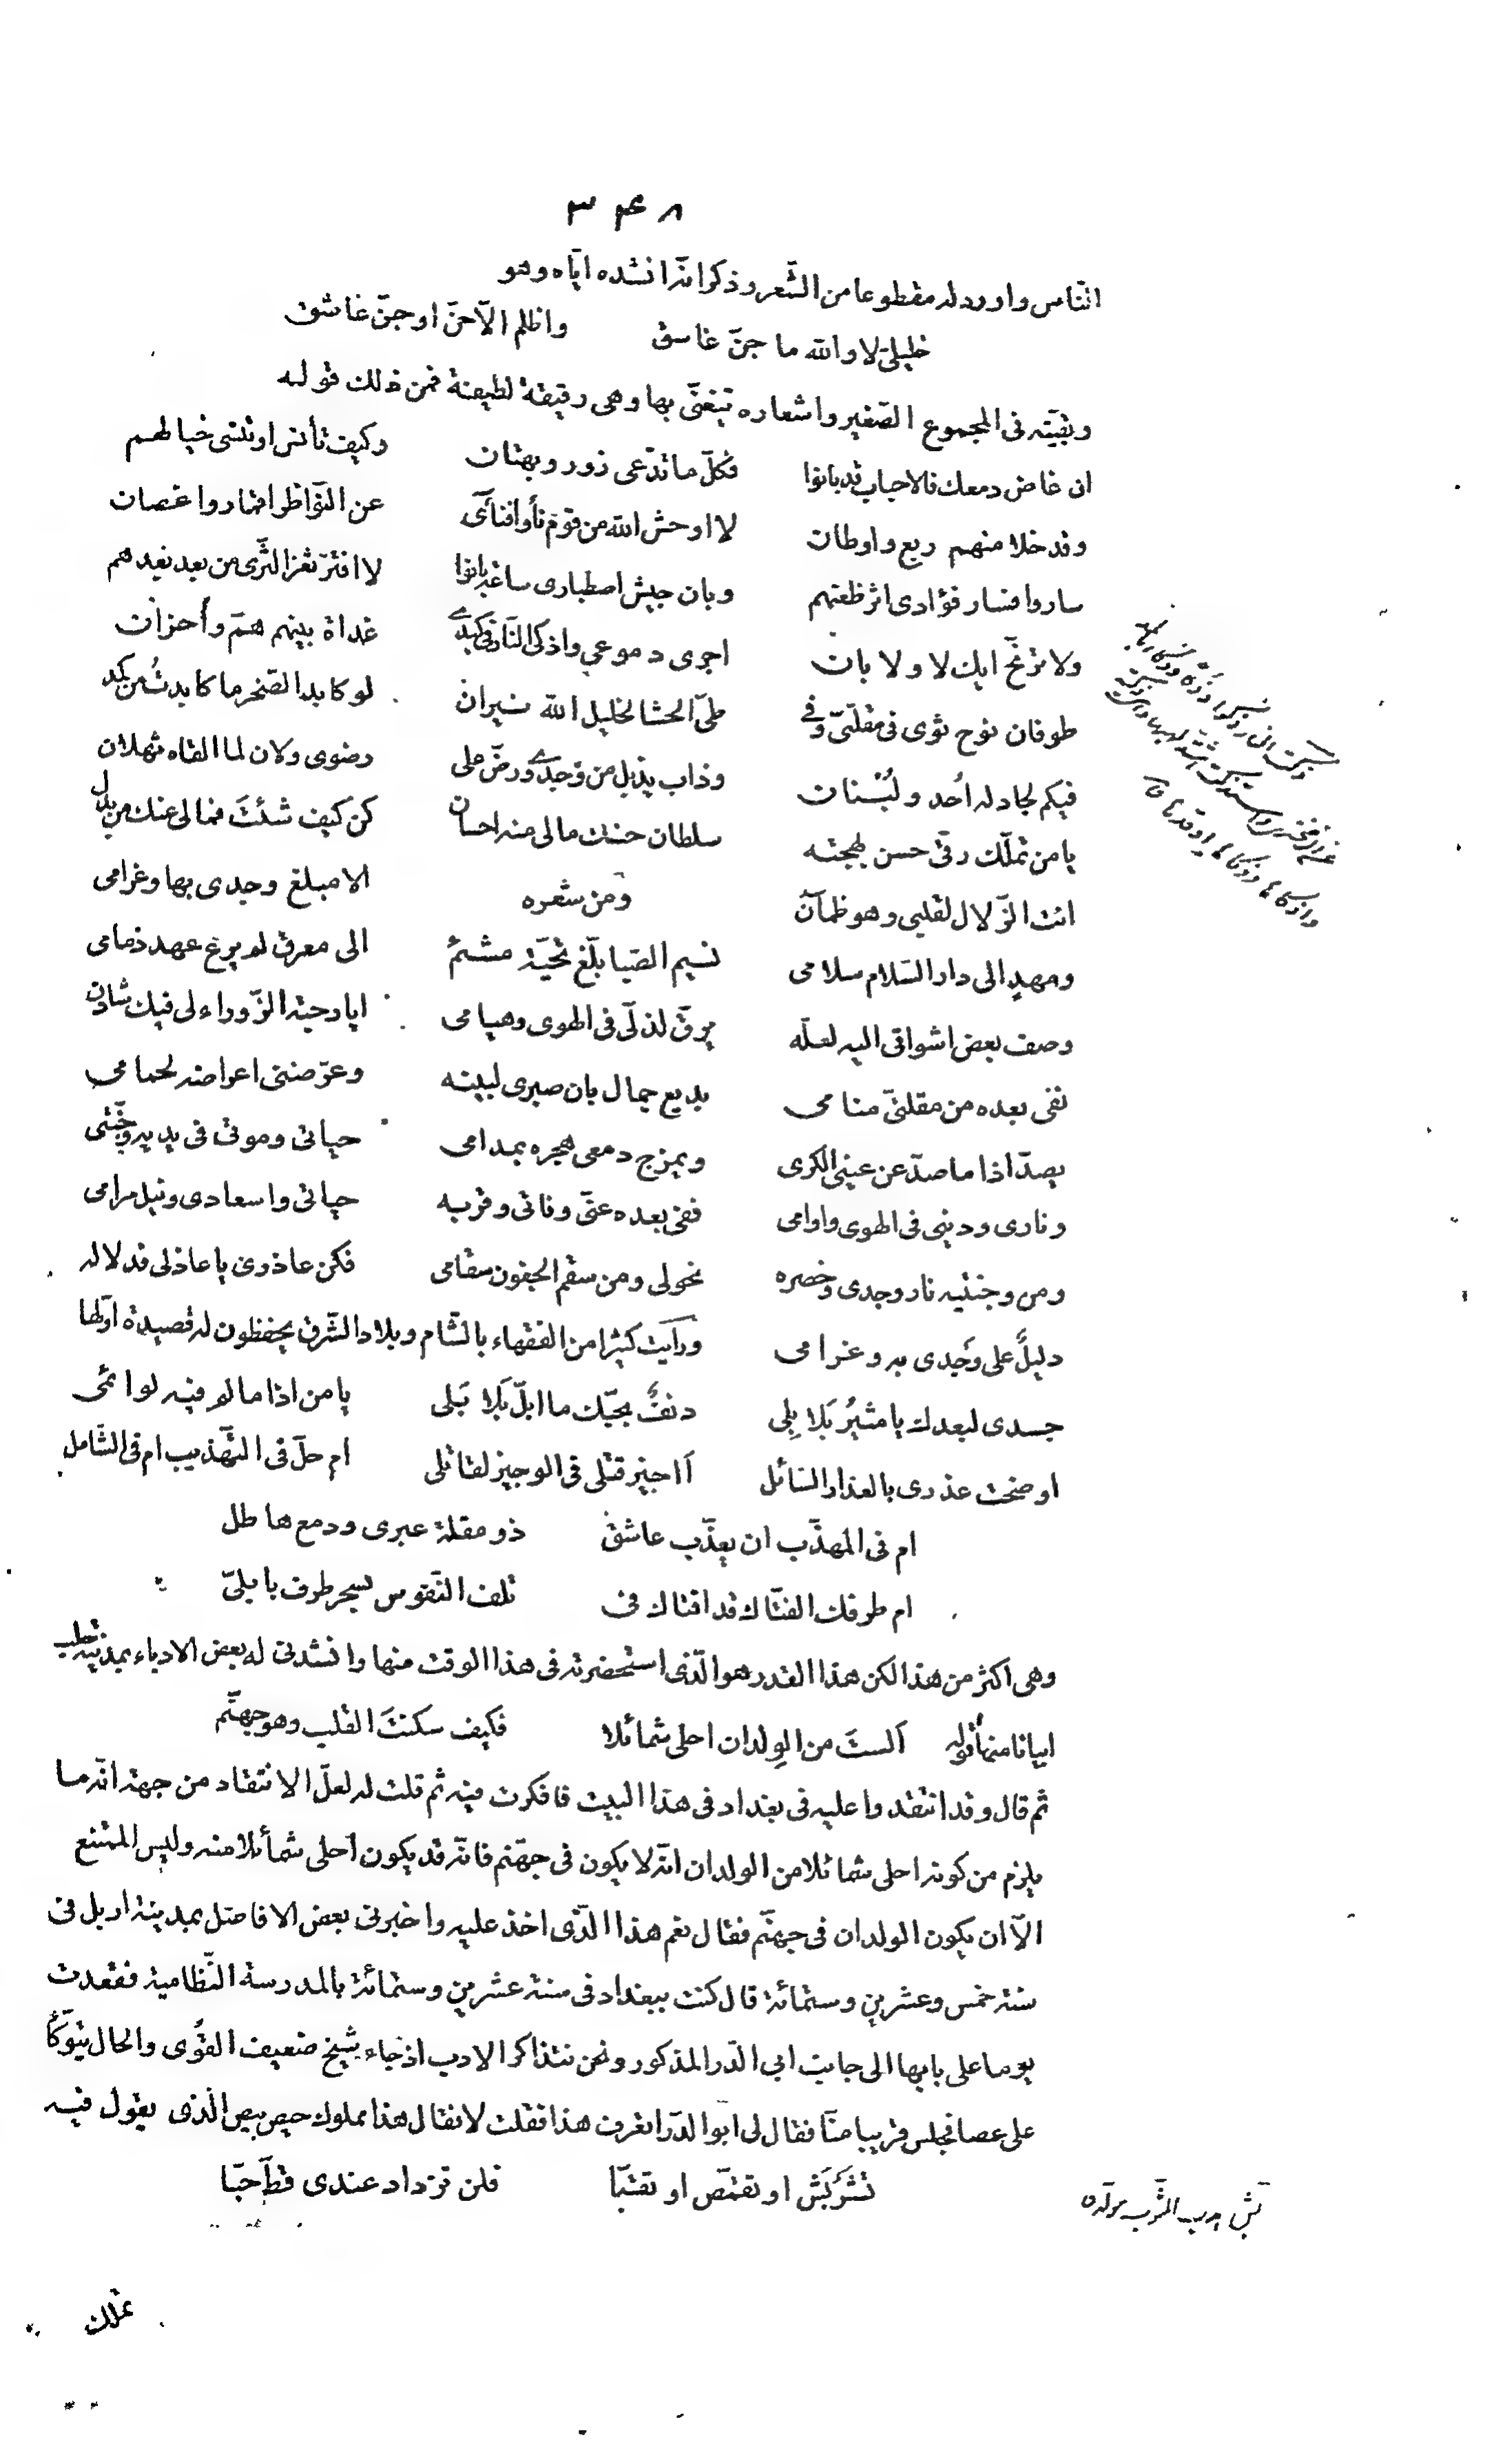 ٣٤٨
النّاس واورد له مقطوعا من الشّعر وذكر انّه انشده ايّاه وهو
خليلىّ لا والله ما جنّ غاسق واظلم الّا حنّ او جنّ عاشق
وبقيّته فى المجموع الصّغير واشعاره يتغنّى بها وهى رقيقة لطيفة فمن ذلك قوله
ان غاض دمعك فالاحباب قد بانوا فكلّ ما تدّعى زور وبهتان وكيف تأنس او تنسى خيالهم
وقد خلا منهم ربع واوطان لا اوحش الله من قوم نأوا فنأى عن النّواظر اقمار واغصان
ساروا فسار فؤادى اثر ظعنهم وبان جيش اصطبارى ساعة بانوا لا افترّ ثغر الثّرى من بعد بعدهم
ولا ترنّح ايك لا ولا بان اجرى دموعي واذكى النّار فى كبدى غداة بينهم همّ وأحزان
طوفان نوح ثوى فى مقلتىّ وفى طىّ الحشا لخليل الله نيران لو كابد الصّخر ما كابدتُ من كمد
فيكم لجاد له اُحد ولُبْنان وذاب يذبل من وجدى ورضّ على رضوى ولان لما القاه ثهلان
يا من تملّك رقّى حسن بهجته سلطان حسنك مالى منه احسان كن كيف شئتَ فمالى عنك من بدل
انت الزّلال لقلبى وهو ظمآن ومن شعره الا مبلغ وجدى بها وغرامى
ومهدٍ الى دار السّلام سلامى نسيم الصّبا بلّغ تحيّة مشئم الى معرق لم يرع عهد ذمامى
وصف بعض اشواقى اليه لعلّه يرقّ لذلّى فى الهوى وهيامى ايا وحية الزّوراء لى فيك شادن
نفى بعده من مقلتىّ منامى بديع جمال بان صبرى لبينه وعرّضنى اعراضه لحمامى
يصدّ اذا ما صدّ عن عينى الكرى ويمزج دمعى هجره بمدامى حياتى وموتى فى يديه وجنّتى
ونارى ودينى فى الهوى واوامى ففى بعده عنّى وفاتى وقربه حياتى واسعادى ونيل مرامى
ومن وجنتيه نار وجدى وخصره نحولى ومن سقم الجفون سقامى فكن عاذرى يا عاذلى قد لاله
دليلٌ على وجدى به وغرامى ورأيت كثيرا من الفقهاء بالشّام وبلاد الشّرق يحفظون له قصيدة اوّلها
جسدى لبعدك يا مثيرُ بَلا بِلى دنفٌ بحبّك ما ابلّ بَلا بَلى يا من اذا ما لام فيه لوائمى
اوضحت عذرى بالعذار السّائل أاجيز قتلى فى الوجيز لقاتلى ام حلّ فى التّهذيب ام فى الشّامل
ام فى المهذّب ان يعذّب عاشق ذو مقلة عبرى ودمع هاطل
ام طرفك الفتّاك قد افتاك فى تلف النّفوس بسحر طرف بابلىّ
وهى اكثر من هذا لكن هذا القدر هو الّذى استحضرته فى هذا الوقت منها وانشدنى له بعض الادباء بمدينة حلب
ابياتا منها قوله الستَ من الوِلدان احلى شمائلا فكيف سكنتَ القلب وهو جهنّم
ثم قال وقد انتقدوا عليه فى بغداد فى هذا البيت فافكرت فيه ثم قلت له لعلّ الانتقاد من جهة انّه ما
يلزم من كونه احلى شمائلا من الولدان انّه لا يكون فى جهنّم فانّه قد يكون احلى شمائلا منه وليس الممتنع
الّا ان يكون الولدان فى جهنّم فقال نعم هذا الّذى اخذ عليه واخبرنى بعض الافاضل بمدينة اربل فى
سنة خمس وعشرين وستمائة قال كنت ببغداد فى سنة عشرين وستمائة بالمدرسة النّظامية فقعدت
يوما على بابها الى جانب ابى الدّر المذكور ونحن نتذاكر الادب اذ جاء شيخ ضعيف القُوى والحال يتوكّأ
على عصا فجلس قريبا منّا فقال لى ابو الدّر اتعرف هذا فقلت لا فقال هذا مملوك حيص بيص الّذى يقول فيه
تشربَش او تقمّص او تقبّا فلن تزداد عندى قطّ حبّا